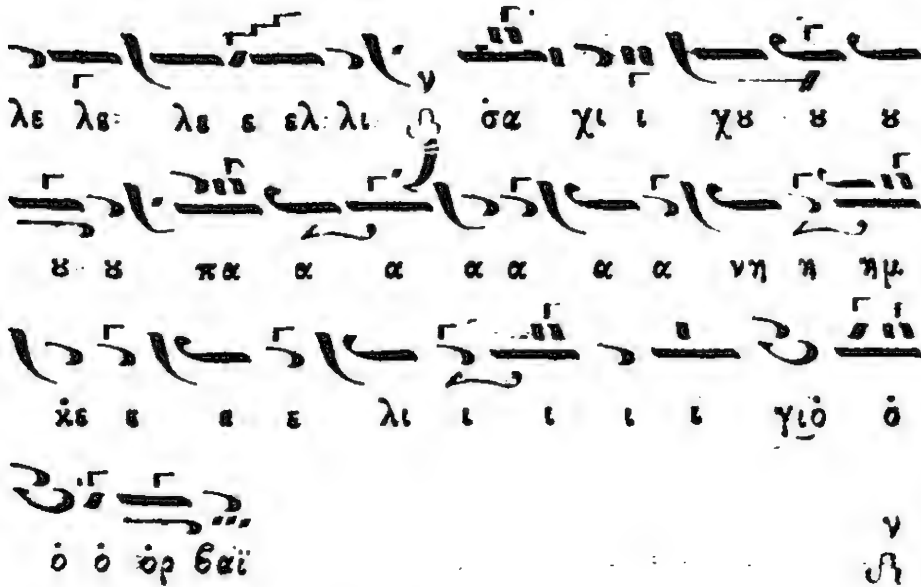 λε λε λε ε ελ λι ν σα χι ι χȣ ȣ ȣ
ȣ ȣ πα α α α α α α νη η ημ
κε ε ε ε λι ι ι ι ι γιο ο
ο ο ορ βαϊ ν